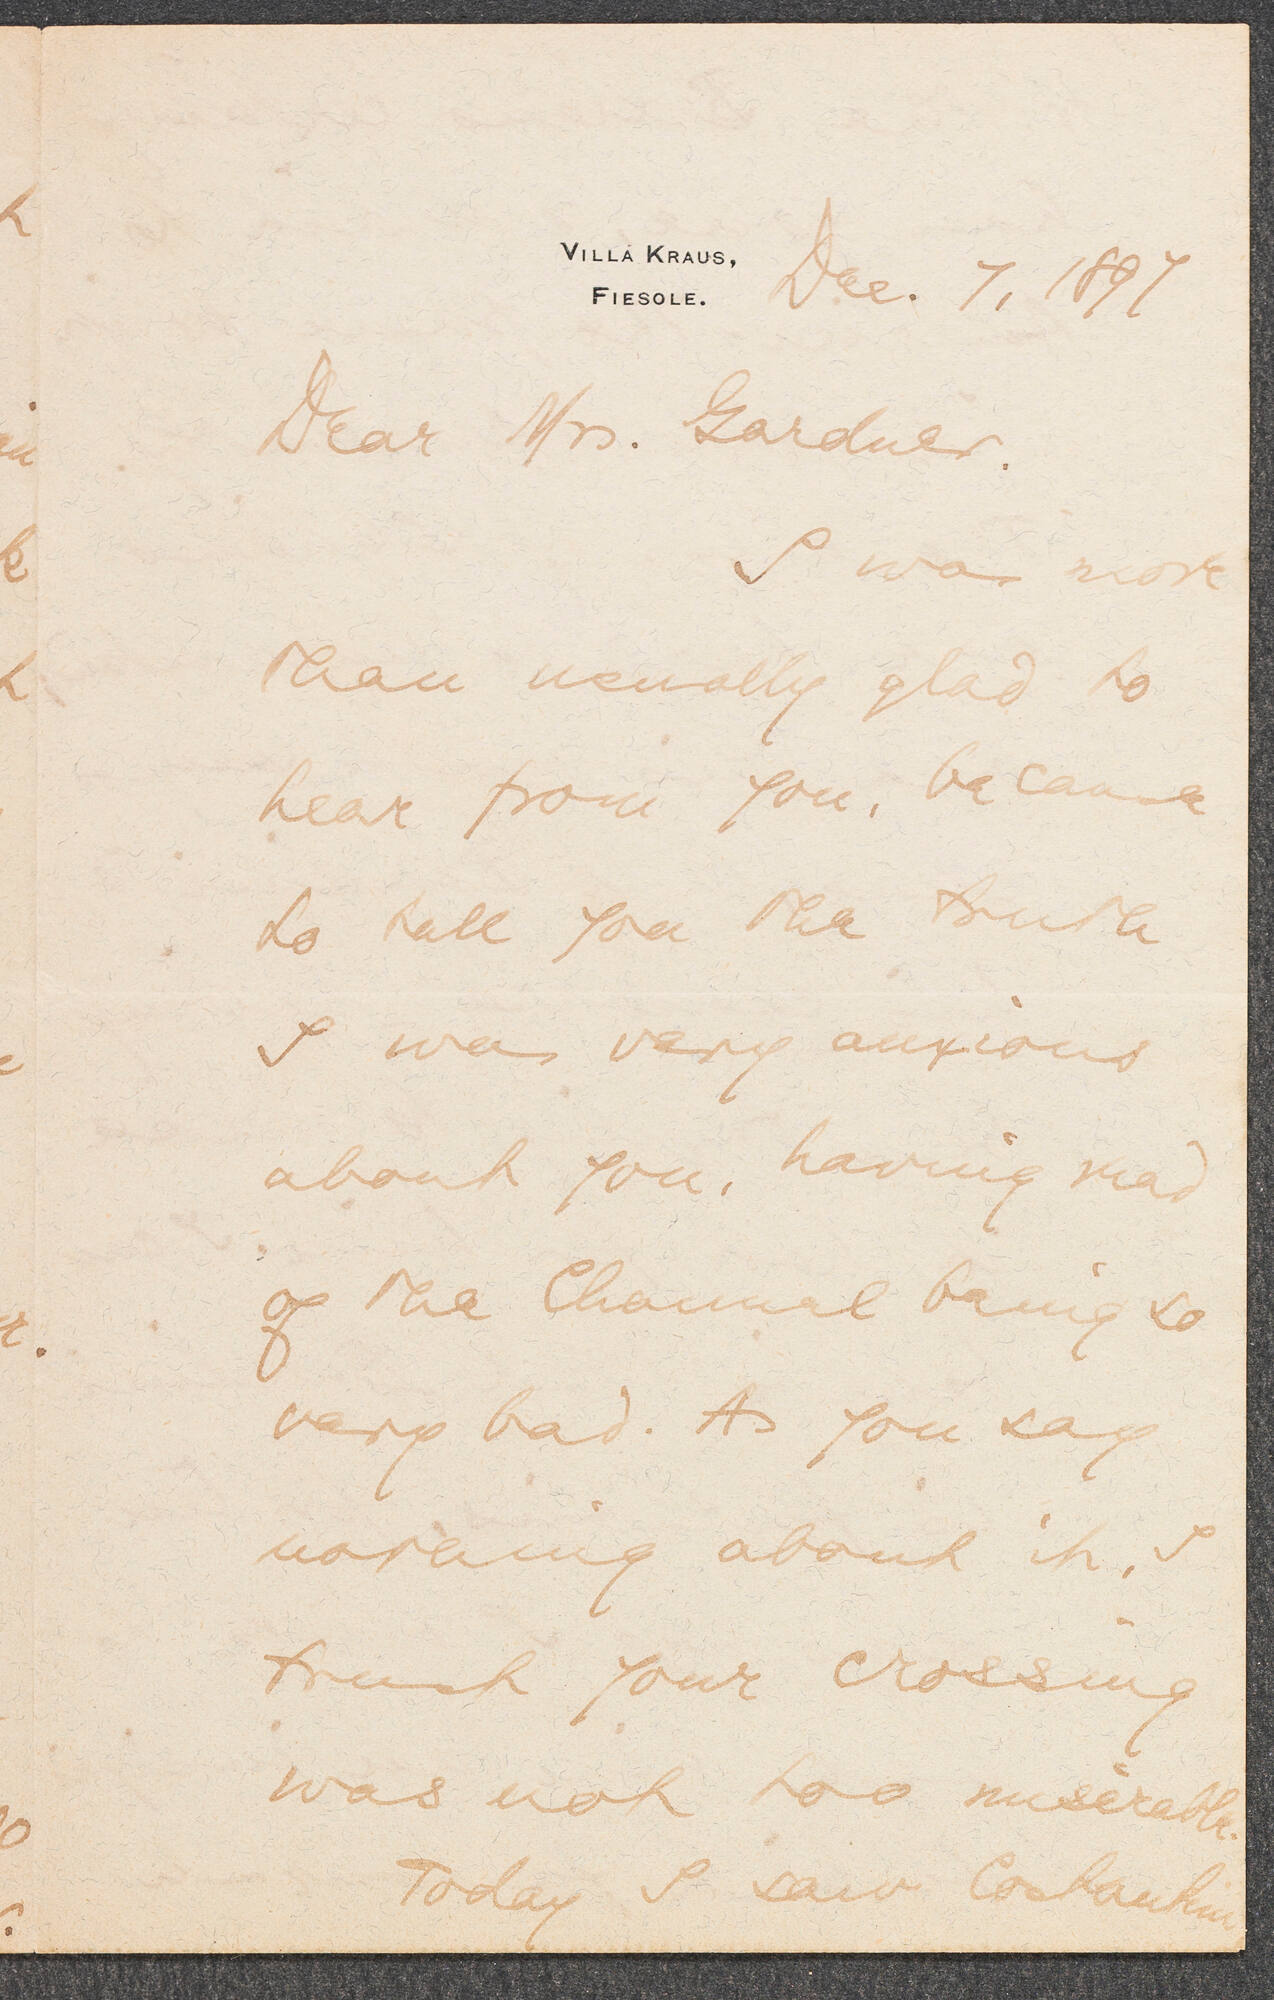 VILLA KRAUS,
FIESOLE.
Dec. 7, 1897
Dear Mrs. Gardner.
I was more
than usually glad to
hear from you, because
to tell you the truth
I was very anxious
about you, having read
of the Channel being so
very bad. As you say
nothing about it, I
trust your crossing
was not too miserable.
Today I saw Costantini